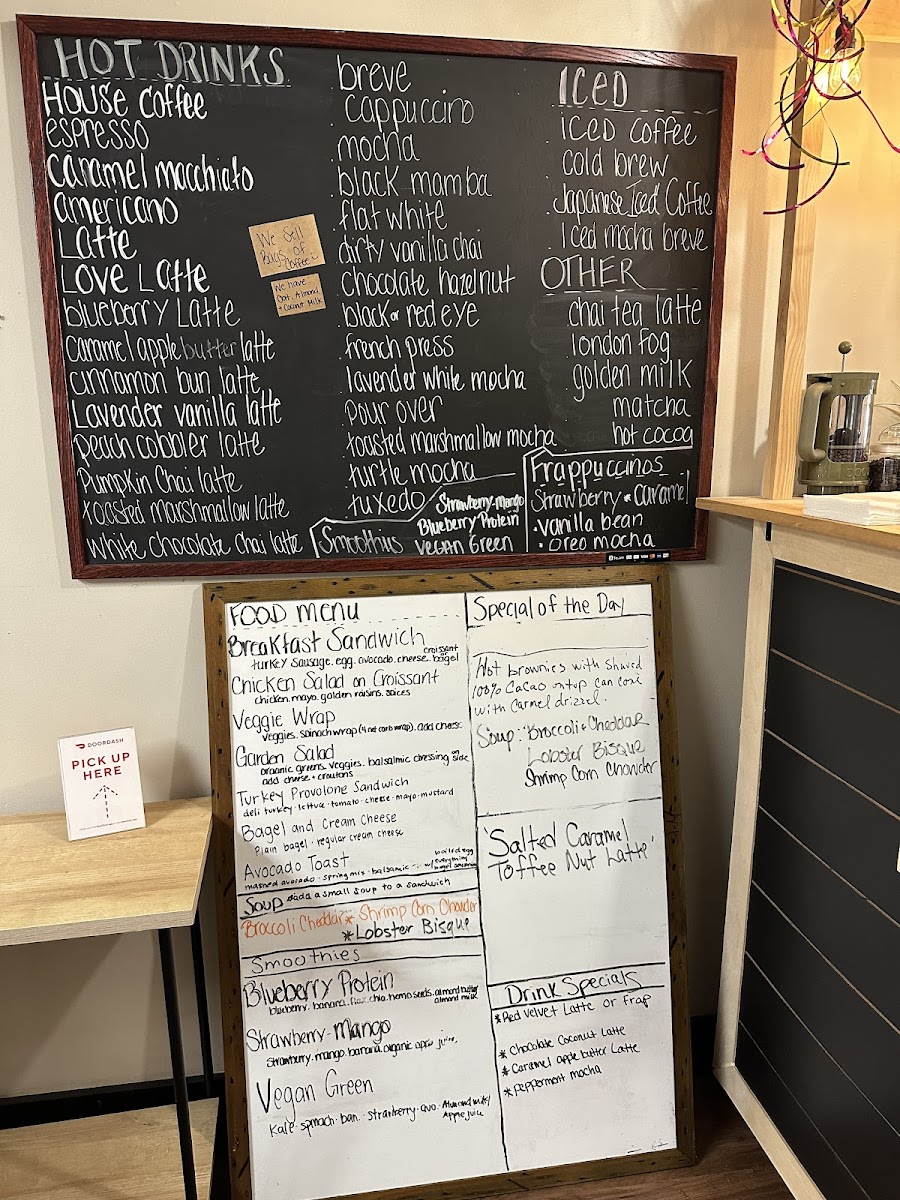 HOT DRINKS
House coffee
espresso
caramel macchiato
americano
Latte
Love Latte
blueberry Latte
caramel apple butter latte
cinnamon bun latte
Lavender vanilla latte
peach cobbler latte
Pumpkin Chai latte
toasted marshmallow latte
white chocolate chai latte
We Sell
Bags of
Coffee
We have
Oat, Almond,
+ Coconut Milk
breve
cappuccino
mocha
black mamba
flat white
dirty vanilla chai
chocolate hazelnut
black or red eye
french press
lavender white mocha
pour over
toasted marshmallow mocha
turtle mocha
tuxedo
Smoothies
Strawberry-mango
Blueberry Protein
Vegan Green
ICED
iced coffee
cold brew
Japanese Iced Coffee
Iced mocha breve
OTHER
chai tea latte
london fog
golden milk
matcha
hot cocoa
Frappuccinos
Strawberry • caramel
•vanilla bean
• oreo mocha
DOORDASH
PICK UP
HERE
FOOD menu
Breakfast Sandwich
turkey sausage. egg. avocado. cheese. croissant or bagel
Chicken Salad on Croissant
chicken. mayo. golden raisins. spices
Veggie Wrap
veggies. spinach wrap (4 net carb wrap). add cheese
Garden Salad
organic greens. veggies. balsalmic dressing on side
add cheese + croutons
Turkey Provolone Sandwich
deli turkey · lettuce · tomato · cheese · mayo · mustard
Bagel and Cream Cheese
Plain bagel · regular cream cheese
Avocado Toast
mashed avocado · spring mix · balsamic · w/ everything bagel seasoning
Soup add a small soup to a sandwich
Broccoli Cheddar * Shrimp Corn Chowder
* Lobster Bisque
Smoothies
Blueberry Protein
blueberry. banana. flax. chia. hemp seeds. almond butter
almond milk
Strawberry-Mango
Strawberry. mango. banana. organic apple juice.
Vegan Green
Kale · spinach · ban. · strawberry · avo. Almond milk/
Apple juice
Special of the Day
Hot brownies with shaved
100% Cacao ontop can come
with Carmel drizzel.
Soup: Broccoli & Cheddar
Lobster Bisque
Shrimp Corn Chowder
'Salted Caramel
Toffee Nut Latte'
Drink Specials
*Red Velvet Latte or Frap
* Chocolate Coconut Latte
* Caramel apple butter Latte
* Peppermint mocha